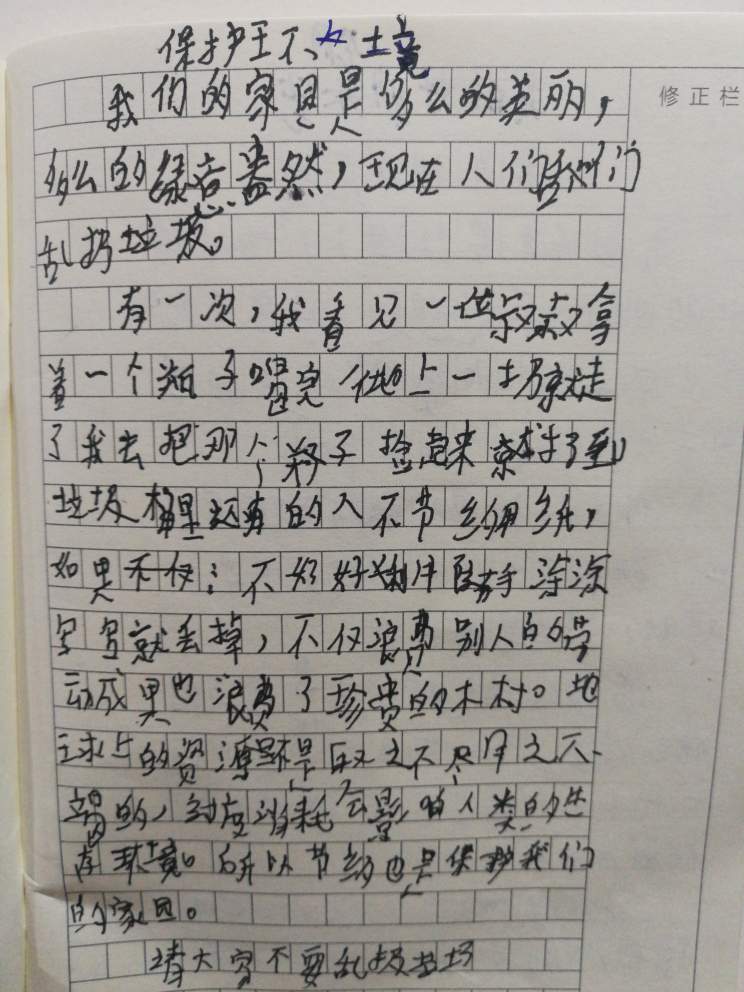 保护环境
修正栏
我们的家园是多么的美丽，
多么的绿意盎然，现在人们
乱扔垃圾。
有一次，我看见一位叔叔拿
着一个瓶子喝完 往地上一扔就走
了我去把那个瓶子捡起来就扔到
垃圾桶里还有的人不节约用纸，
如果不好好利用随手涂涂
写写就丢掉，不仅浪费别人的劳
动成果也浪费了珍贵的木材。地
球上的资源不是取之不尽用之不
竭的，过度消耗会影响人类的生
存环境。所以节约也是保护我们
的家园。
请大家不要乱扔垃圾